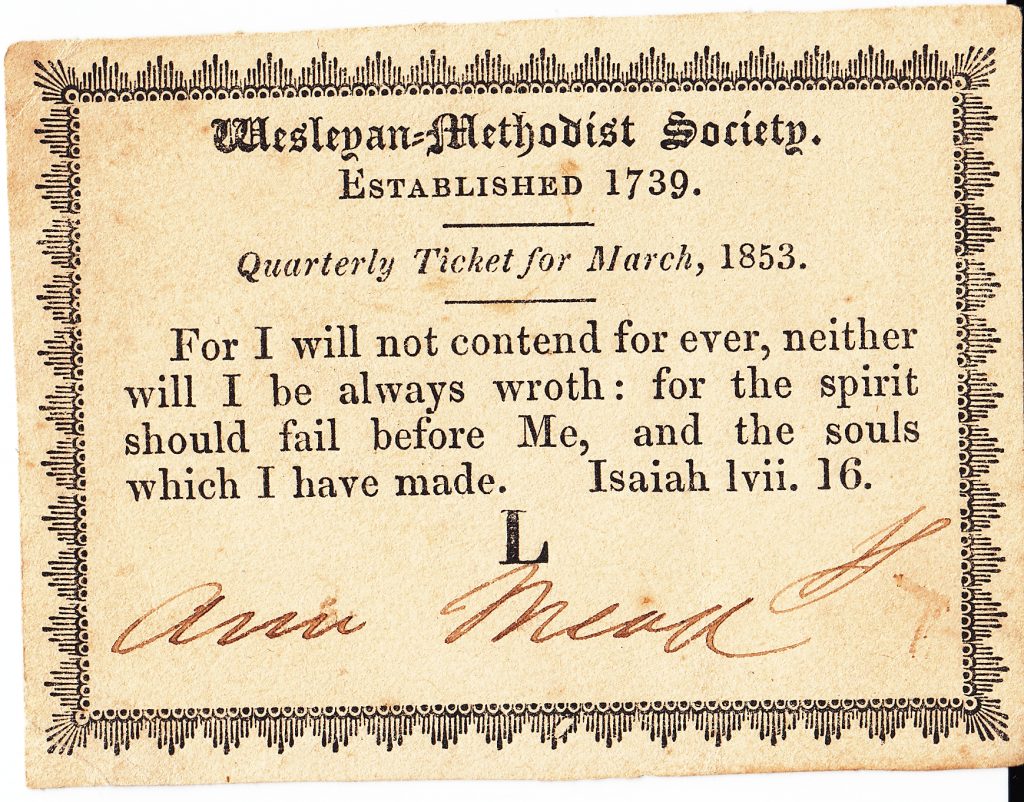 Wesleyan-Methodist Society.
ESTABLISHED 1739.
Quarterly Ticket for March, 1853.
For I will not contend for ever, neither
will I be always wroth: for the spirit
should fail before Me, and the souls
which I have made. Isaiah lvii. 16.
L
Ann Mead